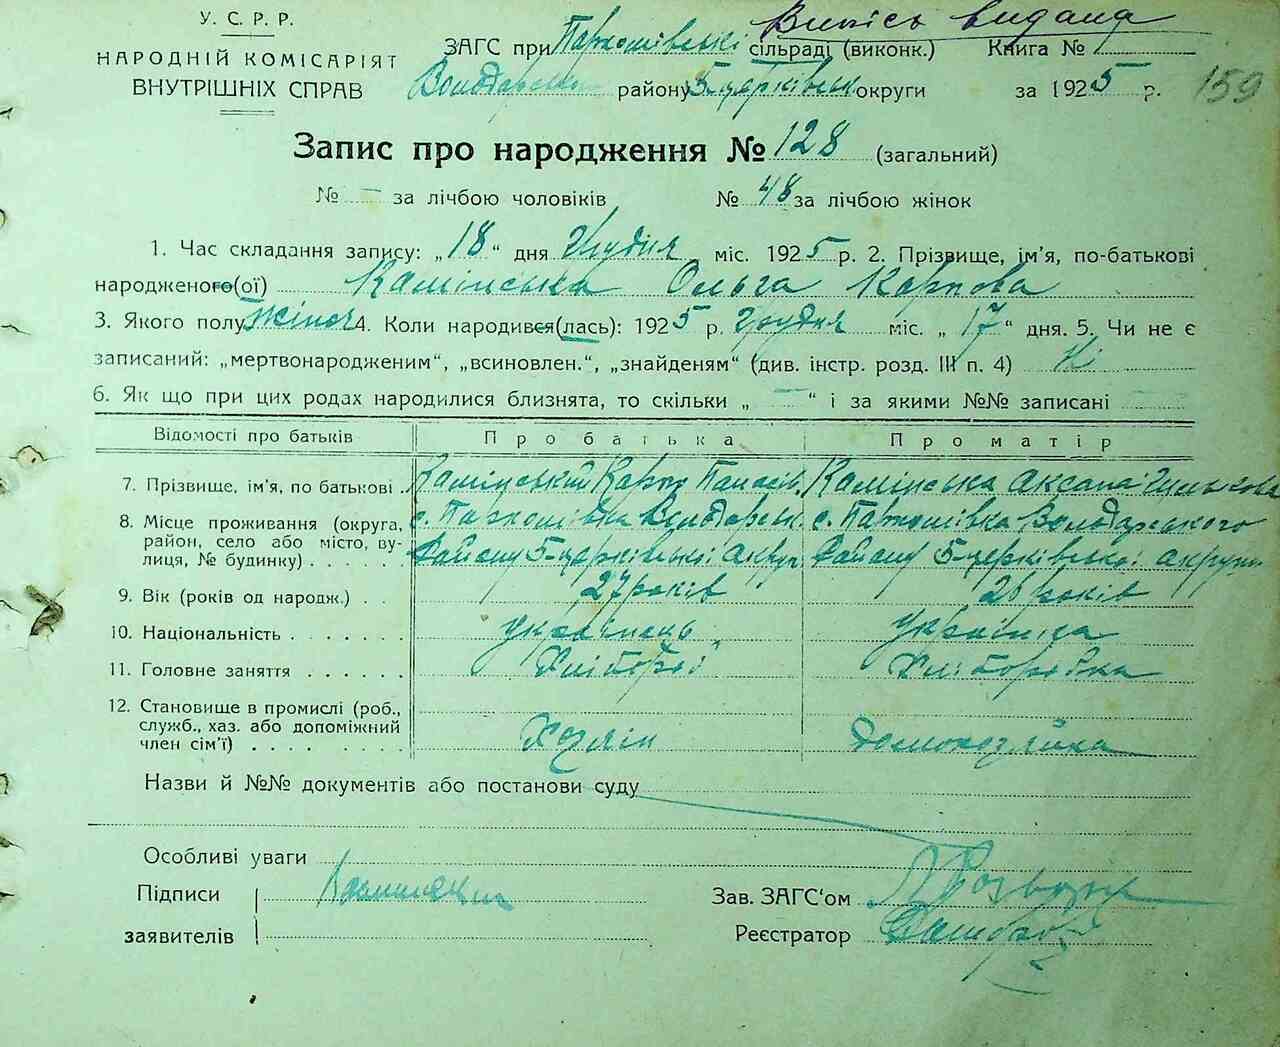 У. С. Р. Р.
НАРОДНІЙ КОМІСАРІЯТ
ВНУТРІШНІХ СПРАВ
Випись видана
ЗАГС при Пархомівські сільраді (виконк.) Книга №
Володарськ району Б-церківськ округи за 1925 р.
159
Запис про народження № 128 (загальний)
№ — за лічбою чоловіків № 48 за лічбою жінок
1. Час складання запису: „18“ дня Грудня міс. 1925 р. 2. Прізвище, ім'я, по-батькові
народженого(ої) Камінська Ольга Карпова
3. Якого полу жіноч 4. Коли народився(лась): 1925 р. Грудня міс. „17“ дня. 5. Чи не є
записаний: „мертвонародженим“, „всиновлен.“, „знайденям“ (див. інстр. розд. III п. 4) Ні
6. Як що при цих родах народилися близнята, то скільки „—“ і за якими №№ записані
Відомості про батьків Про батька Про матір
7. Прізвище, ім'я, по батькові Камінський Карпо Панасів. Камінська Аксана
8. Місце проживання (округа, район, село або місто, вулиця, № будинку) с. Пархомівка Володарськ. с. Пархомівка Володарського
Району Б-церківської Акруг Району Б-церківської акруги
9. Вік (років од народж.) 27 років 26 років
10. Національність українець українка
11. Головне заняття Хлібороб Хліборобка
12. Становище в промислі (роб., служб., хаз. або допоміжний член сім'ї) Хазяїн Домохазяйка
Назви й №№ документів або постанови суду
Особливі уваги
Підписи
заявителів
Зав. ЗАГС'ом
Реєстратор